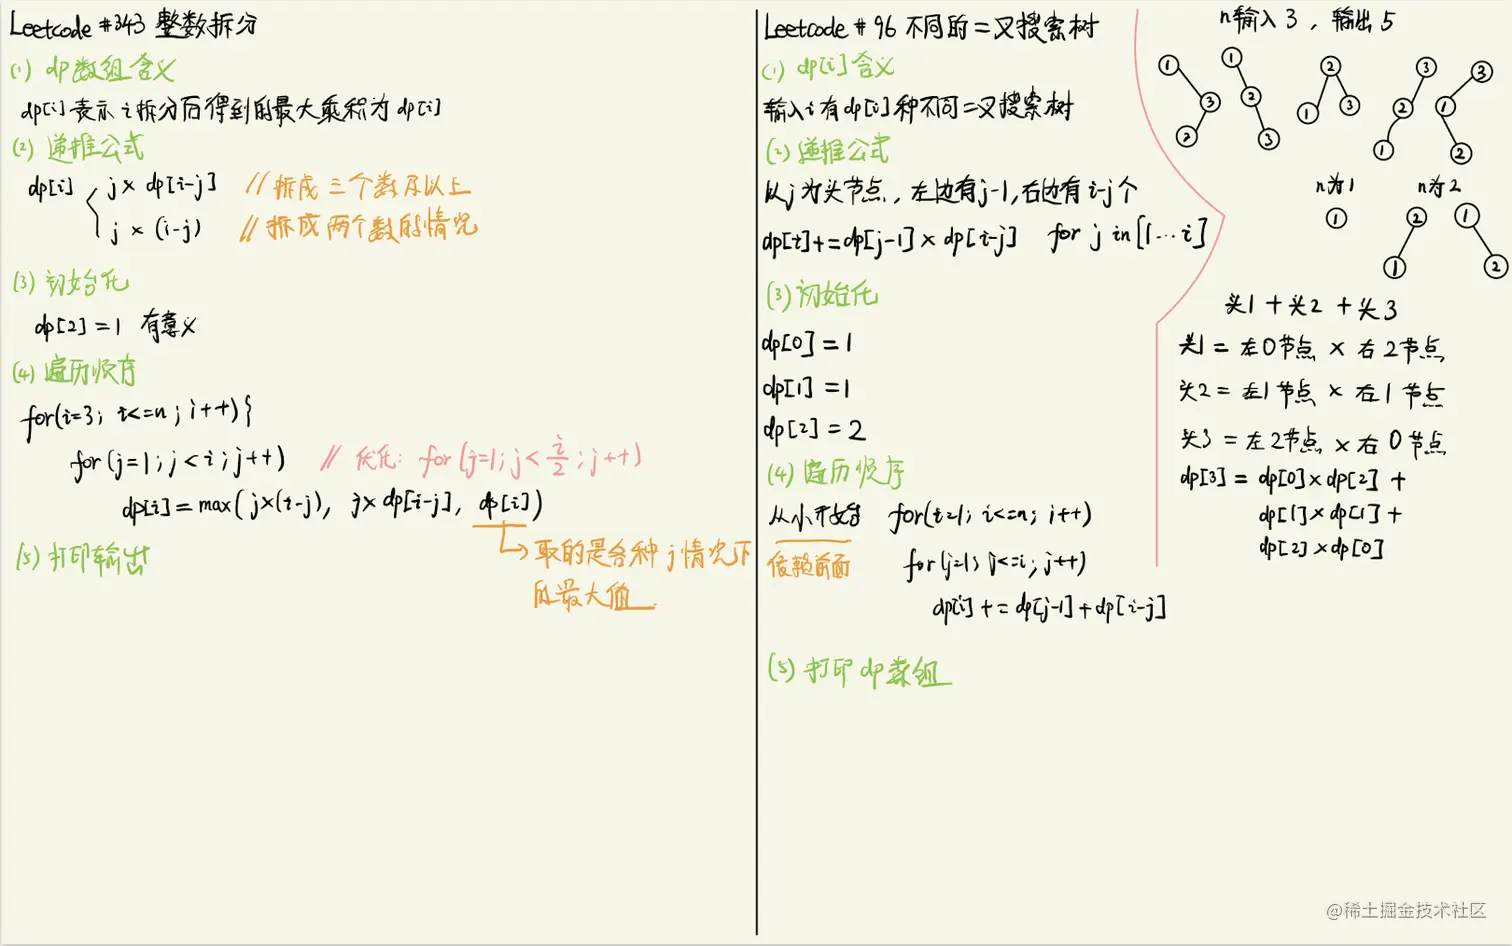 Leetcode #343 整数拆分
(1) dp数组含义
dp[i]表示i拆分后得到的最大乘积为dp[i]
(2) 递推公式
dp[i] j × dp[i-j] //拆成三个数及以上
j × (i-j) //拆成两个数的情况
(3) 初始化
dp[2]=1 有意义
(4) 遍历顺序
for(i=3; i<=n; i++){
for(j=1; j<i; j++) // 优化: for(j=1; j<i/2; j++)
dp[i]=max(j×(i-j), j×dp[i-j], dp[i])
取的是各种j情况下
的最大值
(5) 打印输出
Leetcode #96 不同的二叉搜索树
(1) dp[i]含义
输入i有dp[i]种不同二叉搜索树
(2) 递推公式
以j为头节点, 左边有j-1, 右边有i-j个
dp[i]+=dp[j-1]×dp[i-j] for j in[1...i]
(3) 初始化
dp[0]=1
dp[1]=1
dp[2]=2
(4) 遍历顺序
从小开始 for(i=1; i<=n; i++)
依赖前面 for(j=1; j<=i; j++)
dp[i]+=dp[j-1]+dp[i-j]
(5) 打印dp数组
n输入3, 输出5
1 1 2 3 3
3 2 1 3 2 1
2 3 1 2
n为1 n为2
1 2 1
1 2
头1+头2+头3
头1=左0节点×右2节点
头2=左1节点×右1节点
头3=左2节点×右0节点
dp[3]=dp[0]×dp[2]+
dp[1]×dp[1]+
dp[2]×dp[0]
@稀土掘金技术社区